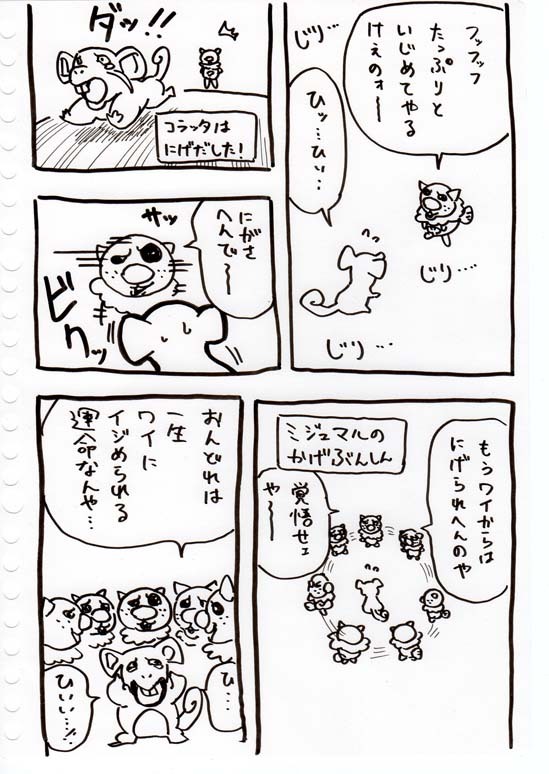 フッフッフ
たっぷりと
いじめてやる
けぇのォー
じり…
ヒッ…ひぃ…
じり…
じり…
ダッ!!
コラッタは
にげだした!
にがさ
へんで〜
サッ
ビクッ
もうワイからは
にげられへんのや
ミジュマルの
かげぶんしん
覚悟せェ
や〜
おんどれは
一生
ワイに
イジめられる
運命なんや…
ひ…
ひぃぃ…!